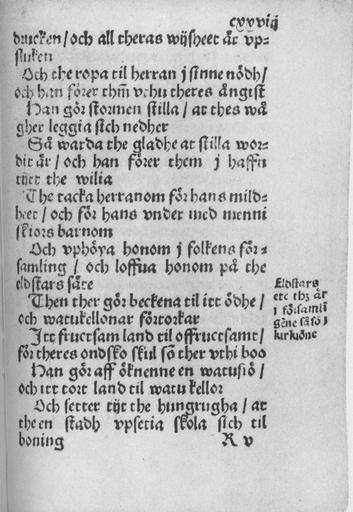 cxxviij
drucken / och all theras wijsheet är vp-
sluken
Och the ropa til herran j sinne nödh /
och han förer thm̄ vthu theres ångist
Han gör stormen stilla / at thes wå
gher leggia sich nedher
Så warda the gladhe at stilla wor-
dit är / och han förer them j haffn
tijt the wilia
The tacka herranom för hans mild-
heet / och för hans vnder med menni
skiors barnom
Och vphöya honom j folkens för-
samling / och loffua honom på the
eldstars säte
Eldstars
etc thz är
j försāli
gēne såsō j
kirkiōne
Then ther gör beckena til itt ödhe /
och watukellonar förtorkar
Itt fructsam land til offructsamt /
för theres ondsko skul sō ther vthi boo
Han gör aff öknenne en watusiō /
och itt tort land til watukellor
Och setter tijt the hungrugha / at
the en stadh vpsetia skola sich til
boning
R v